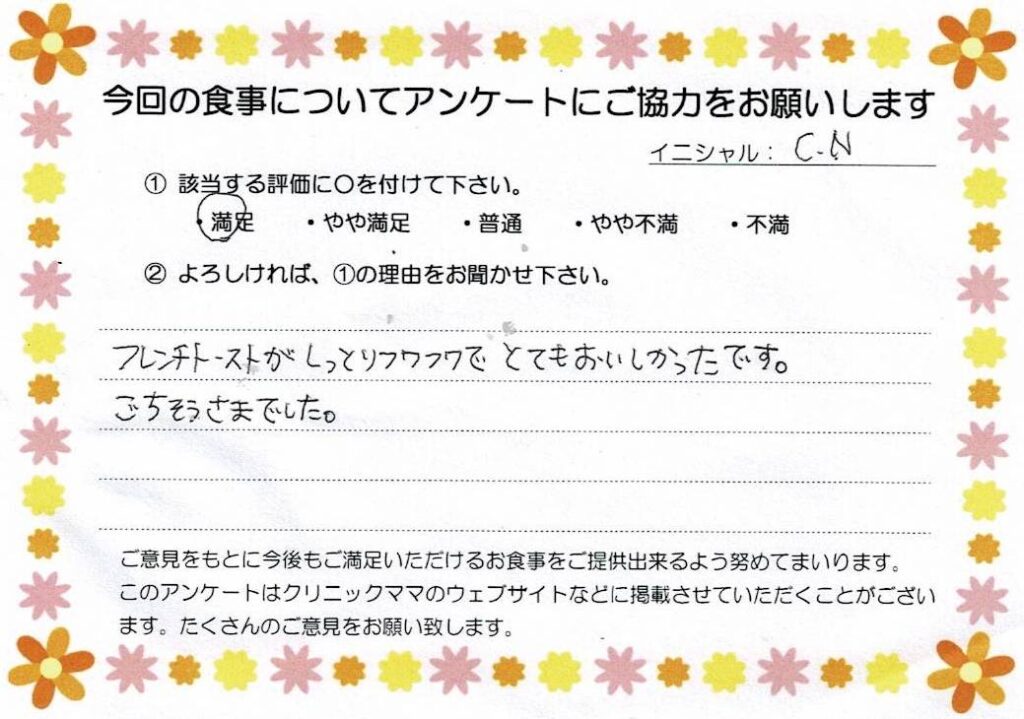 今回の食事についてアンケートにご協力をお願いします
イニシャル： C.N
① 該当する評価に〇を付けて下さい。
・満足 ・やや満足 ・普通 ・やや不満 ・不満
② よろしければ、①の理由をお聞かせ下さい。
フレンチトーストがしっとりフワフワでとてもおいしかったです。
ごちそうさまでした。
ご意見をもとに今後もご満足いただけるお食事をご提供出来るよう努めてまいります。
このアンケートはクリニックママのウェブサイトなどに掲載させていただくことがござい
ます。たくさんのご意見をお願い致します。